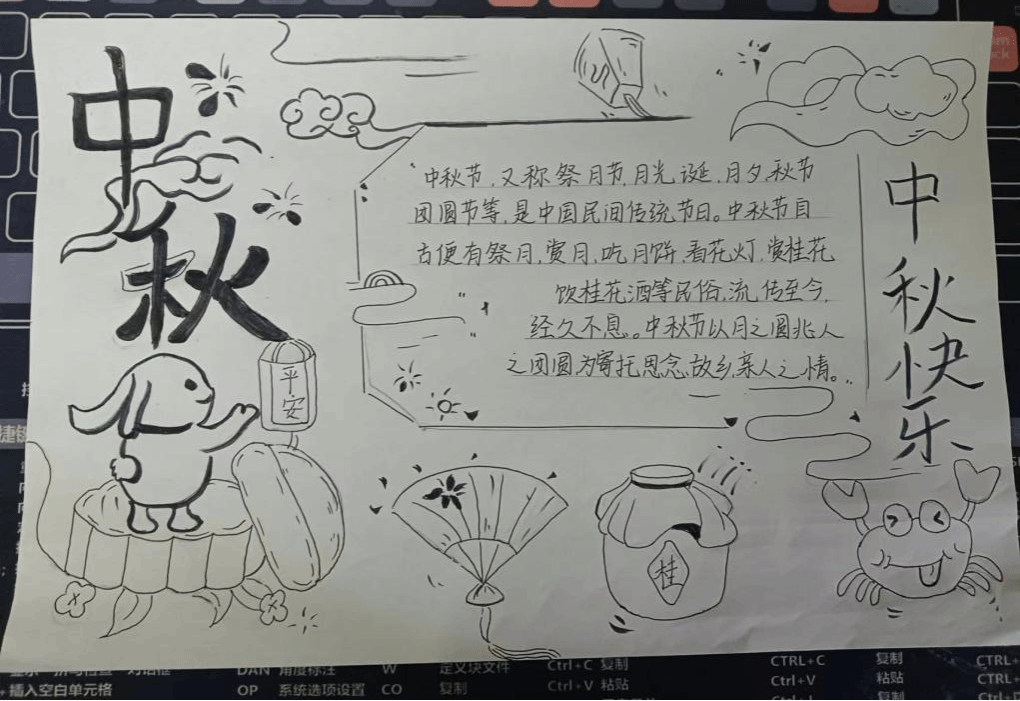 中秋
中秋节,又称祭月节,月光诞,月夕,秋节
团圆节等,是中国民间传统节日。中秋节自
古便有祭月,赏月,吃月饼,看花灯,赏桂花
饮桂花酒等民俗,流传至今,
经久不息。中秋节以月之圆兆人
之团圆为寄托思念故乡,亲人之情。
中秋快乐
平安
桂
DAN 角度标注 W 定义块文件 Ctrl+C 复制 CTRL+C 复制 CTRL+
插入空白单元格 OP 系统选项设置 CO 复制 Ctrl+V 粘贴 Ctrl+V 粘贴 CTRL+